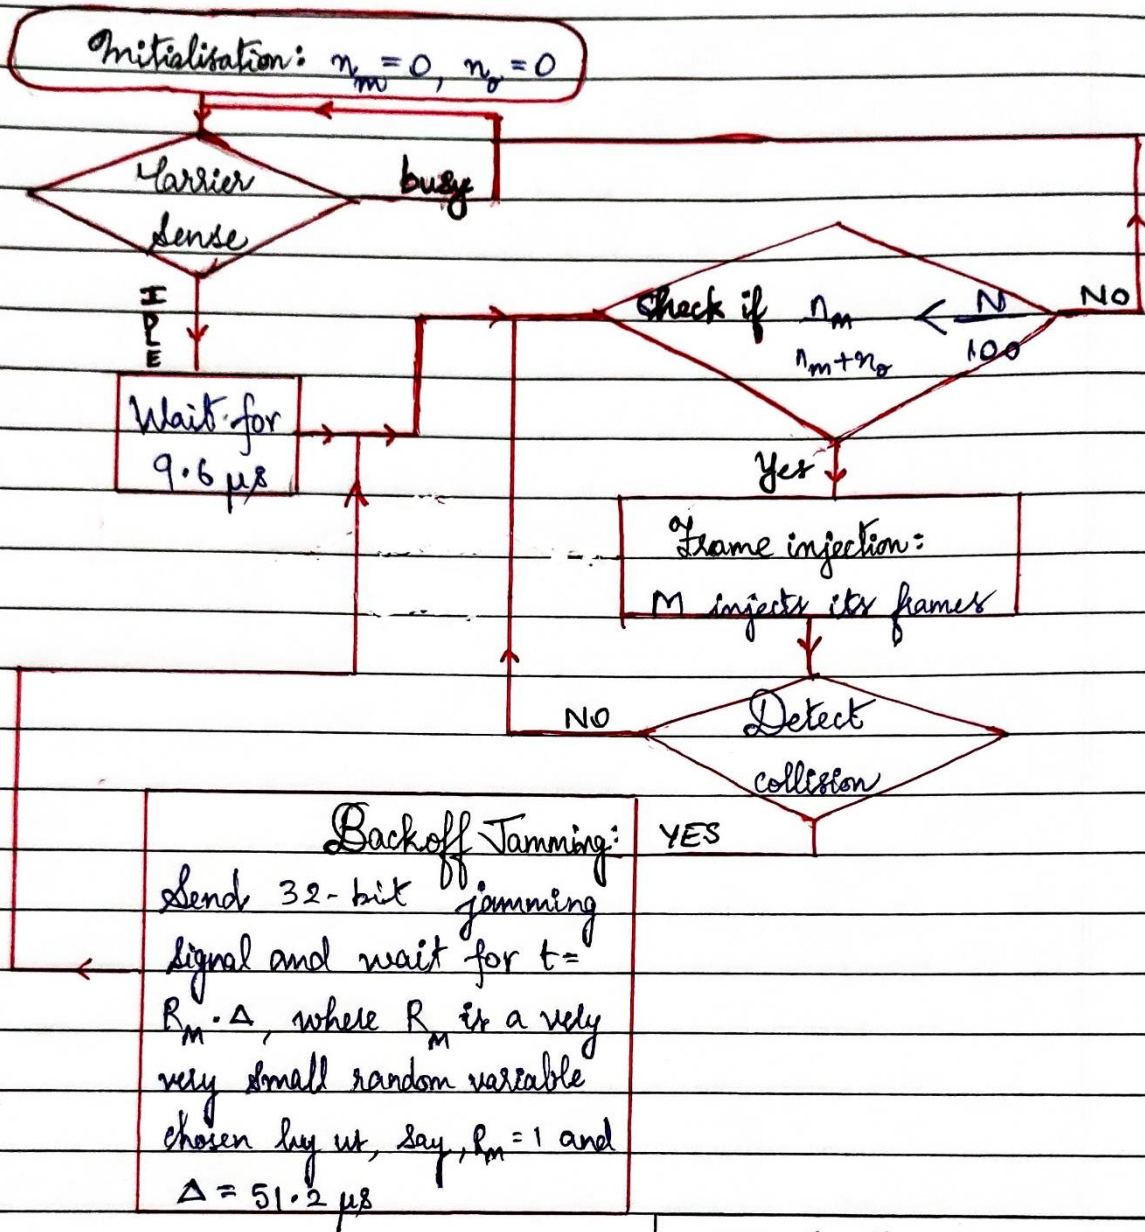 Initialisation: n_m = 0, n_o = 0
Carrier
Sense
busy
IDLE
Wait for
9.6 μs
Check if n_m / n_m + n_o < N / 100
NO
Yes
Frame injection:
M injects its frames
Detect
collision
NO
YES
Backoff Jamming:
Send 32-bit jamming
signal and wait for t =
R_M . Δ, where R_M is a very
very small random variable
chosen by us, say, R_M = 1 and
Δ = 51.2 μs